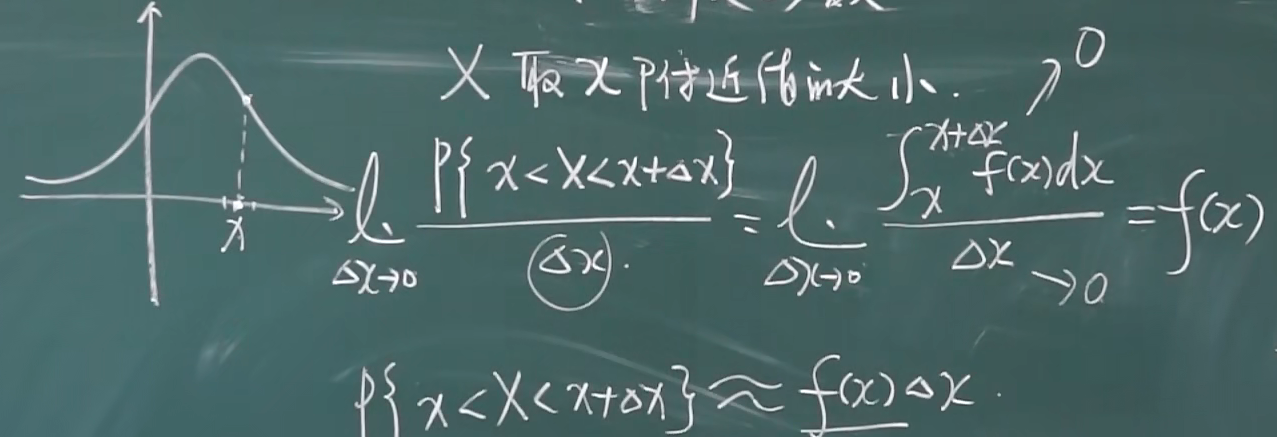 X 取 x 附近值的大小. ↗0
l. Δx→0 P{x<X<x+Δx} / Δx. = l. Δx→0 ∫_x^{x+Δx} f(x)dx / Δx →0 = f(x)
x
P{x<X<x+Δx} ≈ f(x)Δx.